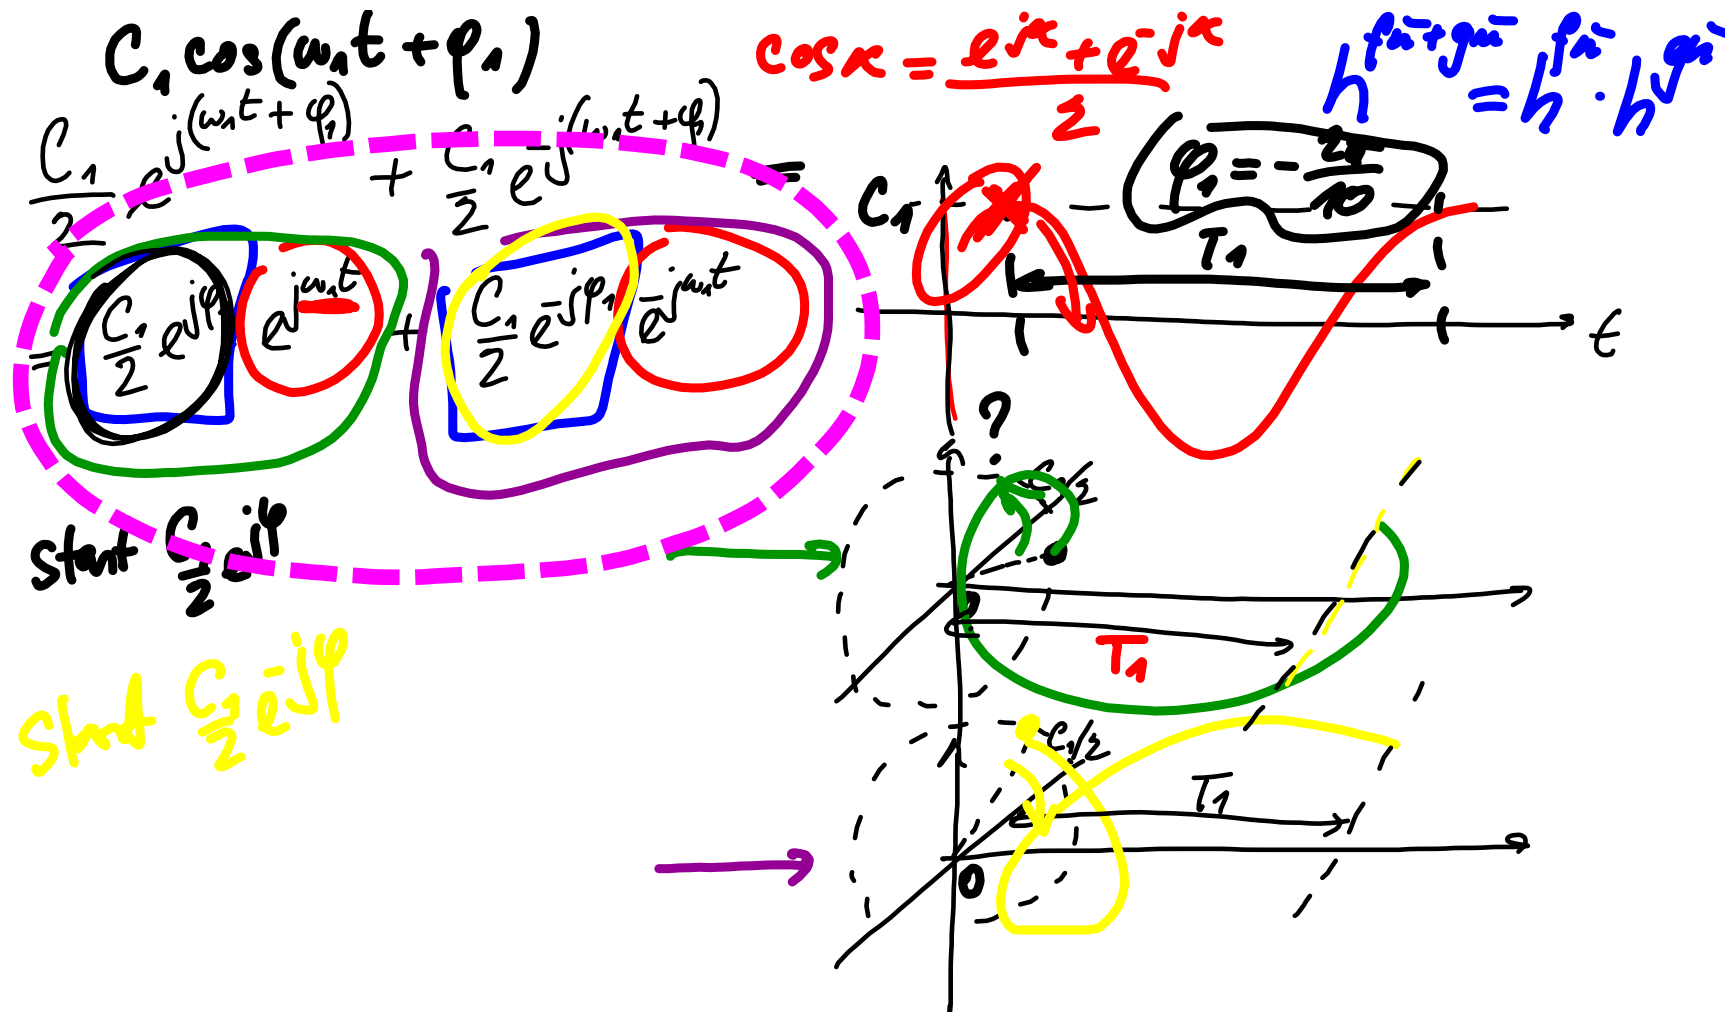 C₁ cos(ω₁t + φ₁)
cos x = (e^{jx} + e^{-jx})/2
h^{fx̄ + gx̄} = h^{fx̄} · h^{gx̄}
C₁/2 e^{j(ω₁t + φ₁)} + C₁/2 e^{-j(ω₁t + φ₁)} =
= C₁/2 e^{jφ₁} e^{jω₁t} + C₁/2 e^{-jφ₁} e^{-jω₁t}
C₁
φ₁ = -2π/10
T₁
t
?
start C₁/2 e^{jφ}
C₁/2
T₁
start C₁/2 e^{-jφ}
C₁/2
T₁
0